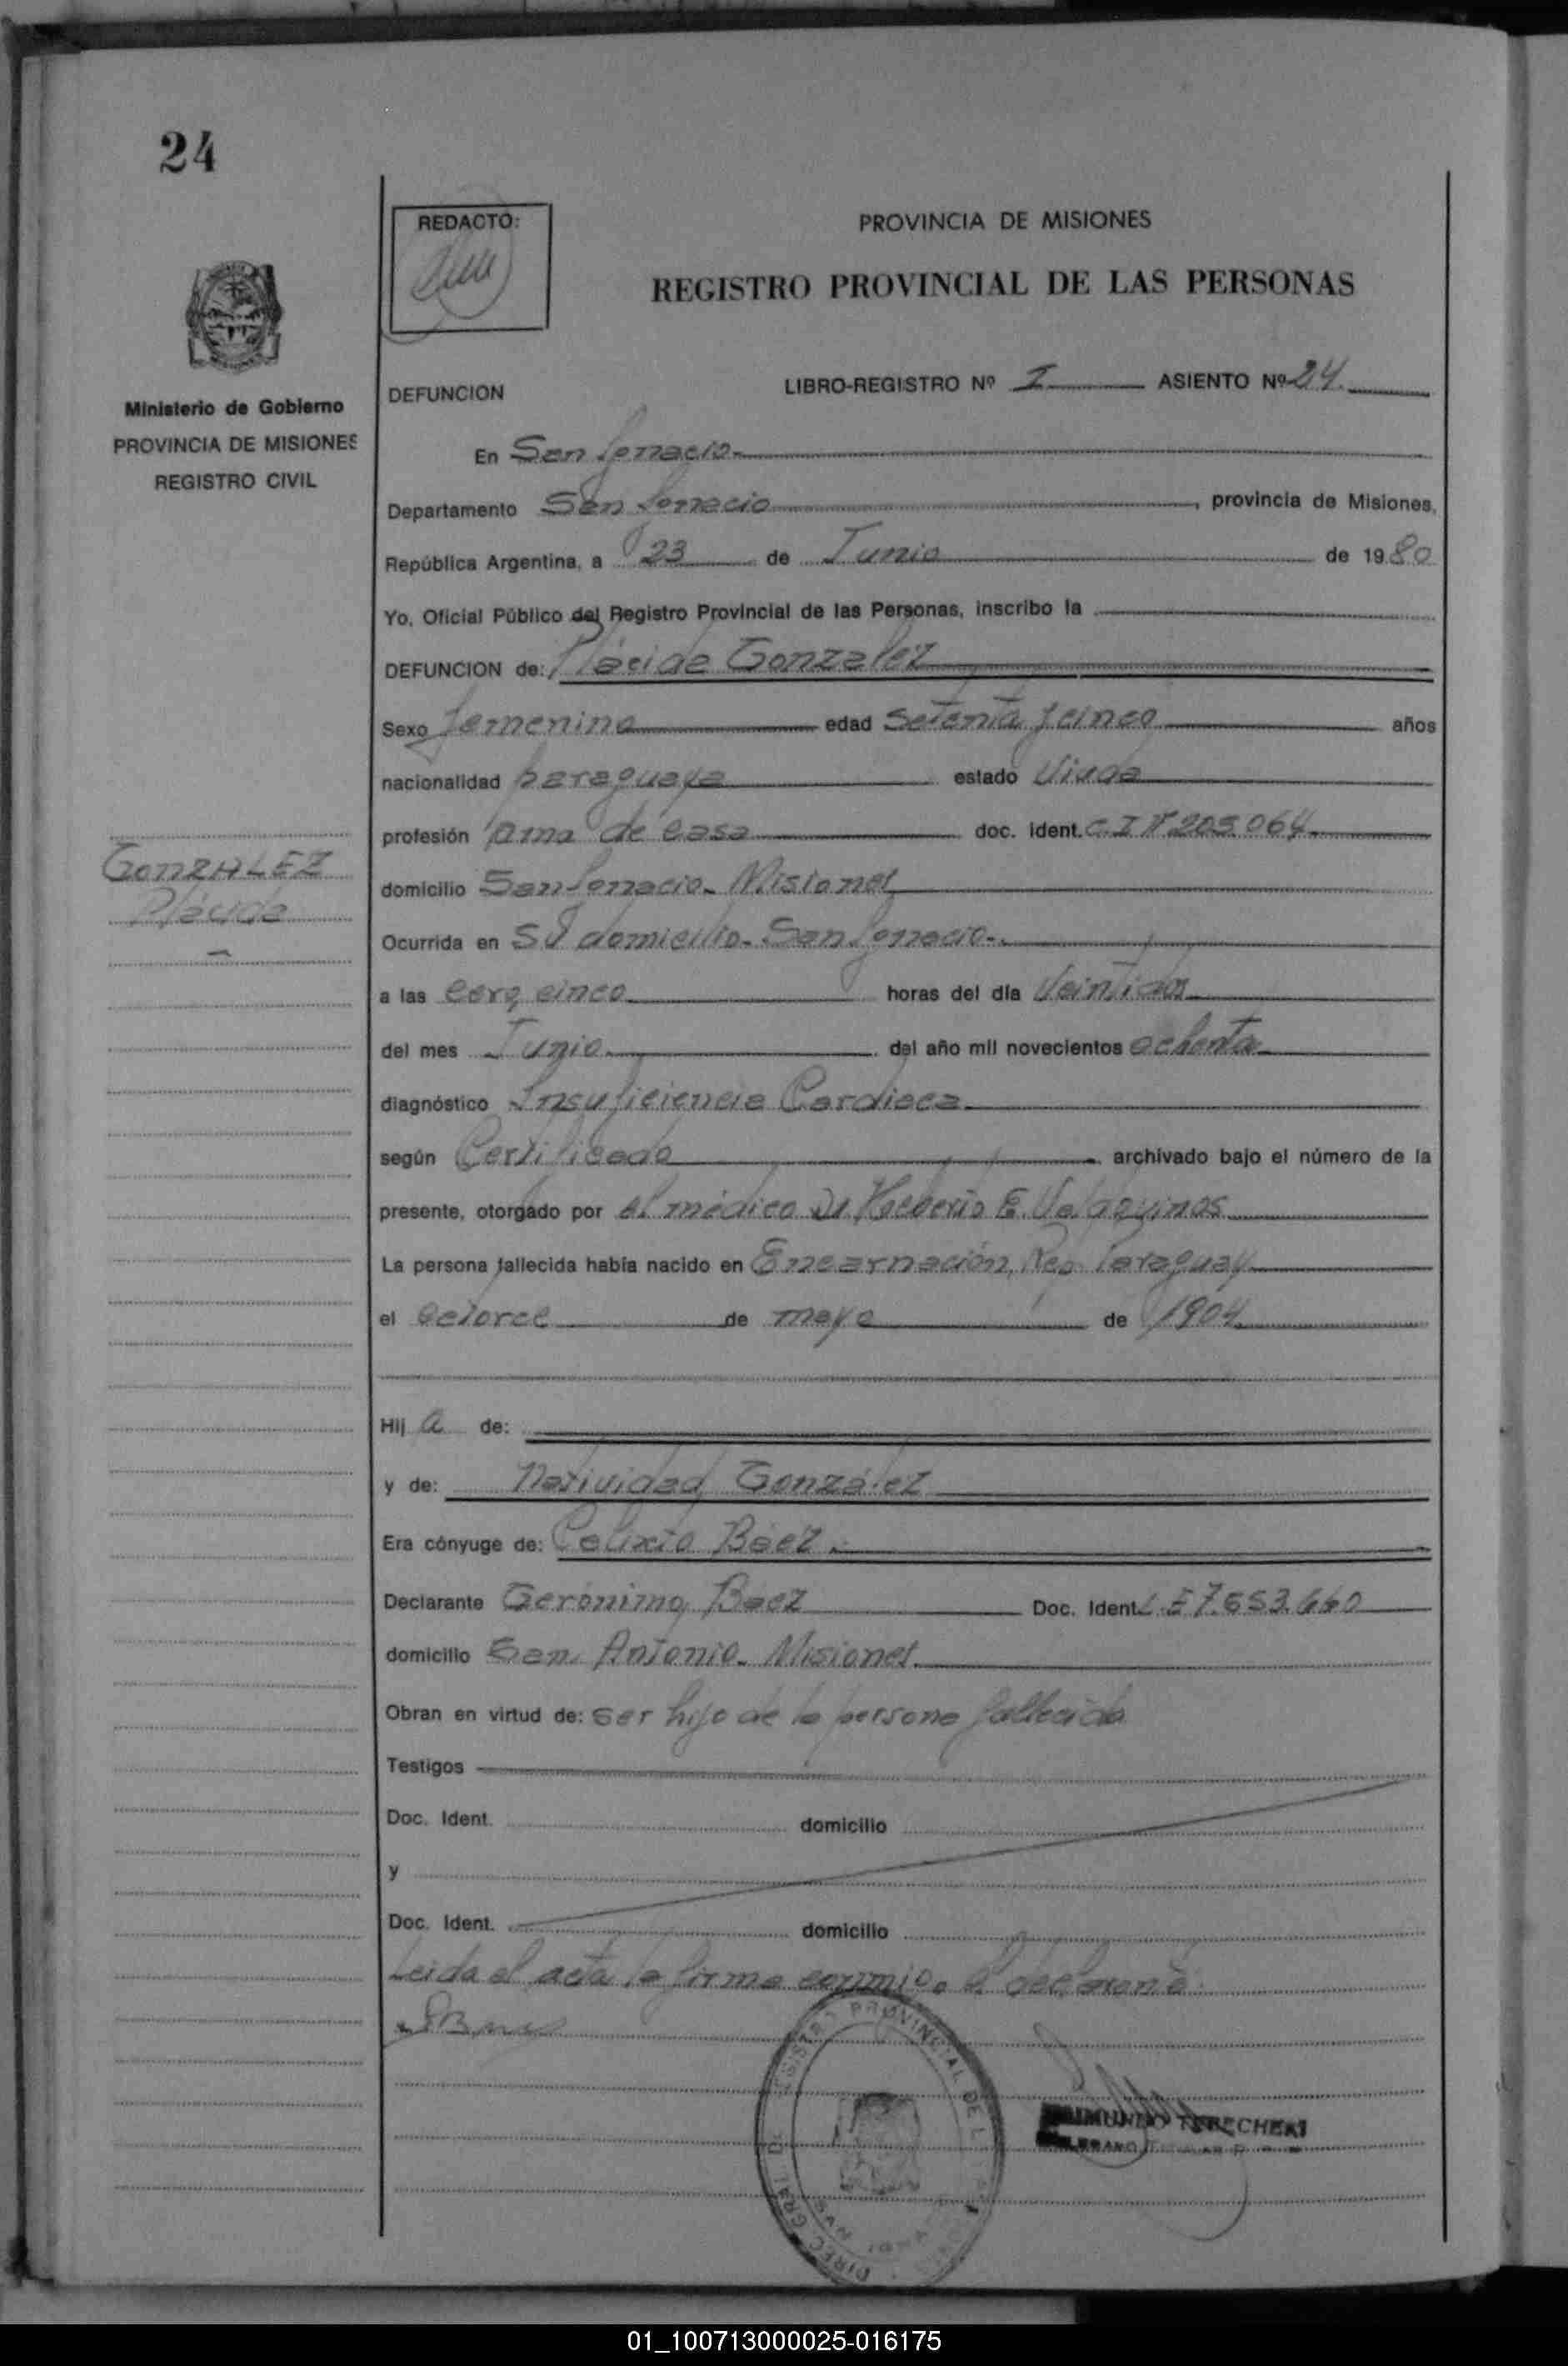 24
REDACTO:
PROVINCIA DE MISIONES
REGISTRO PROVINCIAL DE LAS PERSONAS
Ministerio de Gobierno
PROVINCIA DE MISIONES
REGISTRO CIVIL
GONZALEZ
Plácida
DEFUNCION LIBRO-REGISTRO Nº I ASIENTO Nº 24.
En San Ignacio.
Departamento San Ignacio, provincia de Misiones,
República Argentina, a 23 de Junio de 1980
Yo, Oficial Público del Registro Provincial de las Personas, inscribo la
DEFUNCION de: Plácida Gonzalez
Sexo femenino edad setenta y cinco años
nacionalidad paraguaya estado Viuda
profesión ama de casa doc. ident. C.I Nº 203.064
domicilio San Ignacio. Misiones
Ocurrida en SU domicilio. San Ignacio.
a las cero, cinco horas del día Veintidos
del mes Junio del año mil novecientos ochenta
diagnóstico Insuficiencia Cardiaca
según Certificado archivado bajo el número de la
presente, otorgado por el médico Dr
La persona fallecida había nacido en Encarnación, Rep. Paraguay
el catorce de mayo de 1904
Hij a de:
y de: Natividad González
Era cónyuge de: Báez.
Declarante Gerónimo Báez Doc. Ident. L.E 7.653.660
domicilio San Antonio. Misiones
Obran en virtud de: ser hijo de la persona fallecida
Testigos
Doc. Ident. domicilio
y
Doc. Ident. domicilio
Leida el acta la firma conmigo el declarante
REGISTRO PROVINCIAL DE L
DIREC. GRAL. D
TERECHEKI
01_100713000025-016175